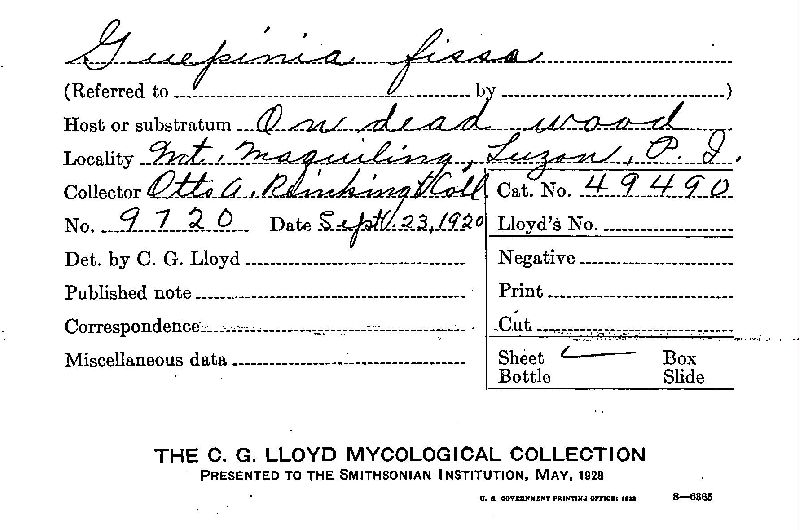 Guepinia fissa
(Referred to by )
Host or substratum On dead wood
Locality Mt. Maquiling, Luzon, P. I.
Collector Otto A. Reinking Coll
Cat. No. 49490
No. 9720 Date Sept. 23, 1920
Lloyd's No.
Det. by C. G. Lloyd
Negative
Published note
Print
Correspondence
Cut
Miscellaneous data
Sheet Box
Bottle Slide
THE C. G. LLOYD MYCOLOGICAL COLLECTION
PRESENTED TO THE SMITHSONIAN INSTITUTION, MAY, 1928
U. S. GOVERNMENT PRINTING OFFICE: 1928 8—6365